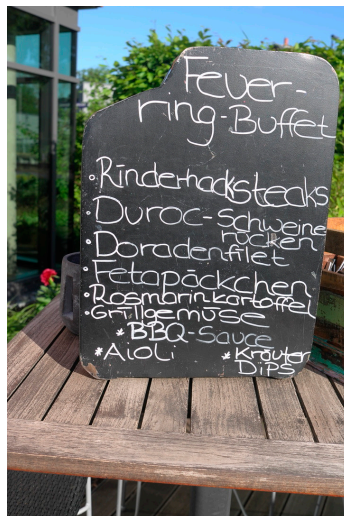 Feuer-
ring-Buffet
• Rinderhacksteaks
• Duroc-Schweine
rücken
• Doradenfilet
• Fetapäckchen
• Rosmarinkartoffel
• Grillgemüse
* BBQ-Sauce
* Aioli * Kräuter
Dips